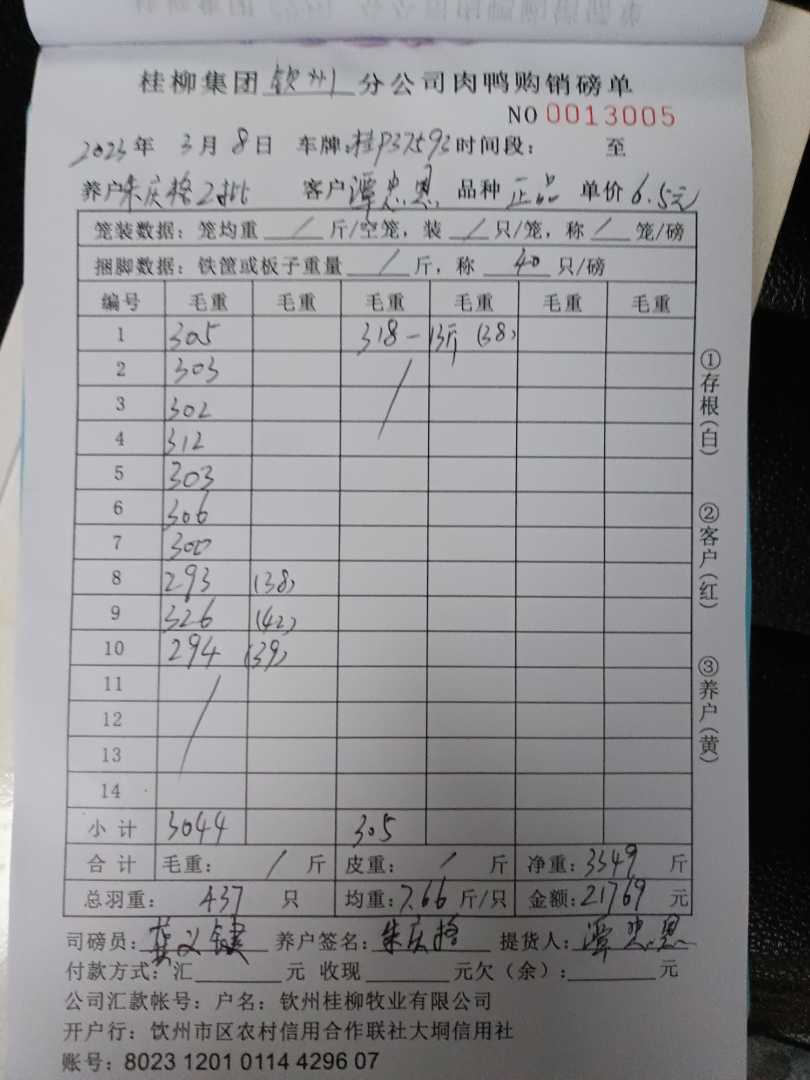 桂柳集团 钦州 分公司肉鸭购销磅单
NO 0013005
2023年 3月8日 车牌:桂P37593 时间段: 至
养户 朱庆格2批 客户 潭忠恩 品种 正品 单价 6.5元
笼装数据: 笼均重 / 斤/空笼, 装 / 只/笼, 称 / 笼/磅
捆脚数据: 铁筐或板子重量 / 斤, 称 40 只/磅
编号 毛重 毛重 毛重 毛重 毛重 毛重
1 305 318 - 13斤 (38)
2 303 /
3 302
4 312
5 303
6 306
7 300
8 293 (38)
9 326 (42)
10 294 (39)
11 /
12
13
14
小计 3044 305
合计 毛重: / 斤 皮重: / 斤 净重: 3349 斤
总羽重: 437 只 均重: 7.66 斤/只 金额: 21769 元
司磅员: 键 养户签名: 朱庆格 提货人: 潭忠恩
付款方式: 汇 元 收现 元欠(余): 元
公司汇款帐号: 户名: 钦州桂柳牧业有限公司
开户行: 钦州市区农村信用合作联社大垌信用社
账号: 8023 1201 0114 4296 07
①存根(白)
②客户(红)
③养户(黄)